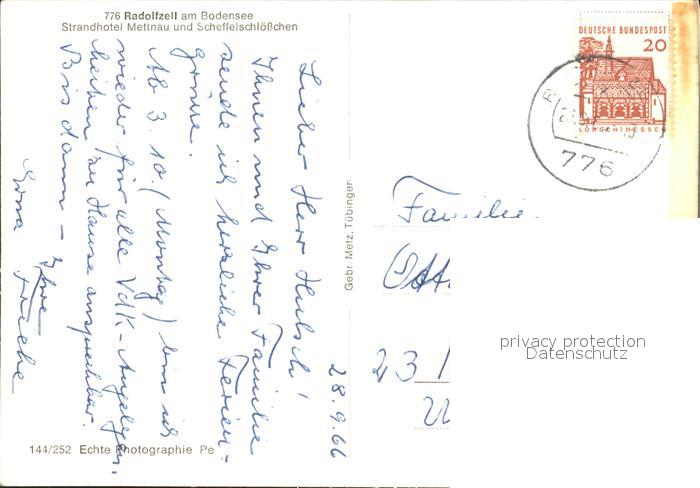 776 Radolfzell am Bodensee
Strandhotel Mettnau und Scheffelschlößchen
28.9.66
Lieber Herr Hutsch!
Ihnen und Ihrer Familie
sende ich herzliche Ferien-
grüsse.
Ab 3.10. (Montag) bin ich
wieder für alle VdK-Angelegen-
heiten zu Hause ansprechbar.
Bis dann –
Ihre
Erna Fricke
144/252 Echte Photographie Pe
Gebr. Metz, Tübingen
DEUTSCHE BUNDESPOST
20
LORSCH/HESSEN
776
Familie
Ott
23 1
privacy protection
Datenschutz